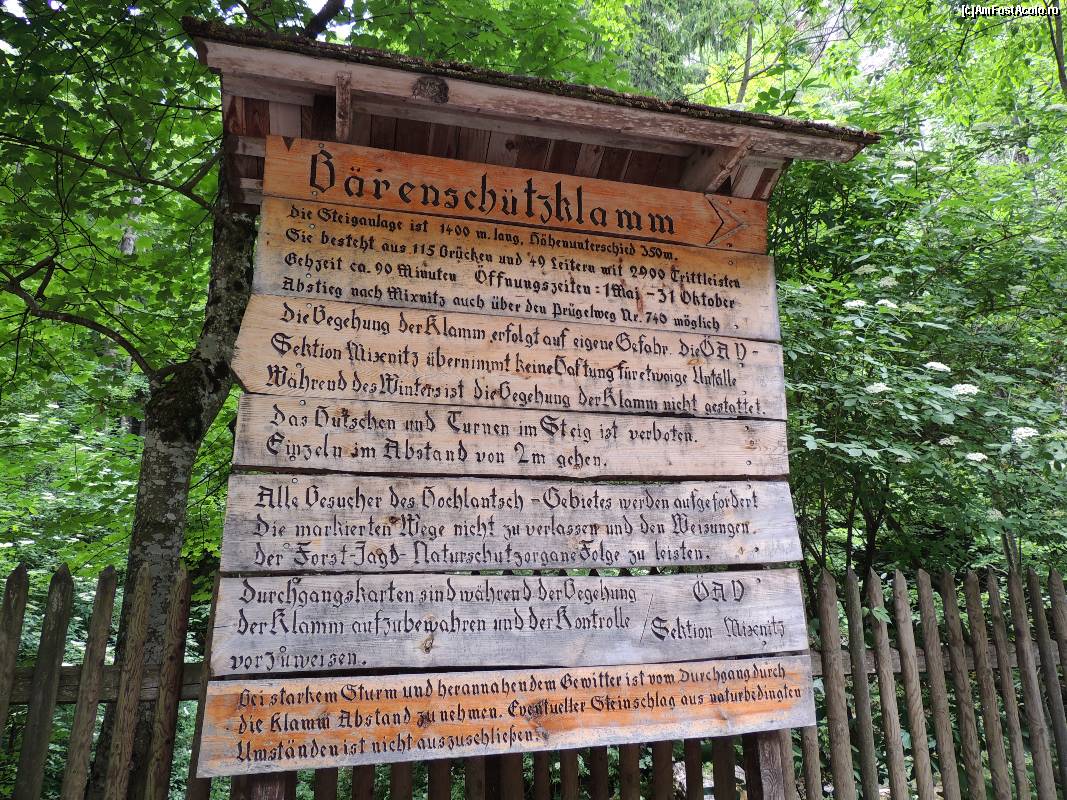 (c)AmFostAcolo.ro
Bärenschützklamm
Die Steiganlage ist 1400 m. lang, Höhenunterschied 350m.
Sie besteht aus 115 Brücken und 49 Leitern mit 2900 Trittleisten
Gehzeit ca. 90 Minuten Öffnungszeiten: 1 Maj - 31 Oktober
Abstieg nach Mixnitz auch über den Prügelweg Nr. 740 möglich
Die Begehung der Klamm erfolgt auf eigene Gefahr. Die ÖAV-
Sektion Mixnitz übernimmt keine Haftung für etwaige Unfälle
Während des Winters ist die Begehung der Klamm nicht gestattet.
Das Hutschen und Turnen im Steig ist verboten.
Einzeln im Abstand von 2m gehen.
Alle Besucher des Hochlantsch-Gebietes werden aufgefordert
Die markierten Wege nicht zu verlassen und den Weisungen.
Der Forst-Jagd-Naturschutzorgane Folge zu leisten.
Durchgangskarten sind während der Begehung / ÖAV
der Klamm aufzubewahren und der Kontrolle / Sektion Mixnitz
vorzuweisen.
Bei starkem Sturm und herannahendem Gewitter ist vom Durchgang durch
die Klamm Abstand zu nehmen. Eventueller Steinschlag aus naturbedingten
Umständen ist nicht auszuschließen.